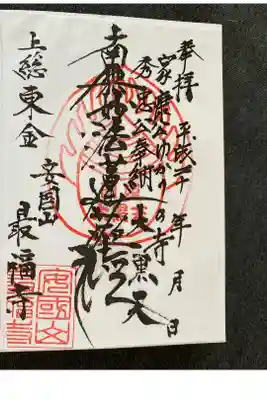 奉拝 平成二十 年 月 日
家康公ゆかりの寺
秀忠公奉納 大黒天
南無妙法蓮華経
上総東金 安国山
最福寺